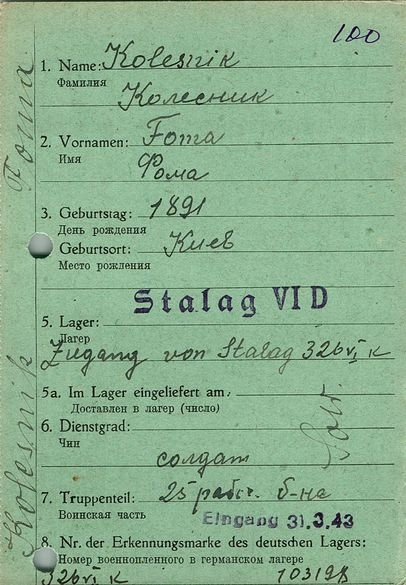 100
1. Name: Kolesnik
Фамилия
Колесник
2. Vornamen: Foma
Имя
Фома
3. Geburtstag: 1891
День рождения
Geburtsort: Киев
Место рождения
Stalag VI D
5. Lager:
Лагер
Zugang von Stalag 326 VI K
5a. Im Lager eingeliefert am:
Доставлен в лагер (число)
6. Dienstgrad: Sold.
Чин
солдат
7. Truppenteil: 25 рабоч. б-на
Воинская часть
Eingang 31.3.43
8. Nr. der Erkennungsmarke des deutschen Lagers:
Номер военнопленного в германском лагере
326 VI K 103198
Kolesnik Foma